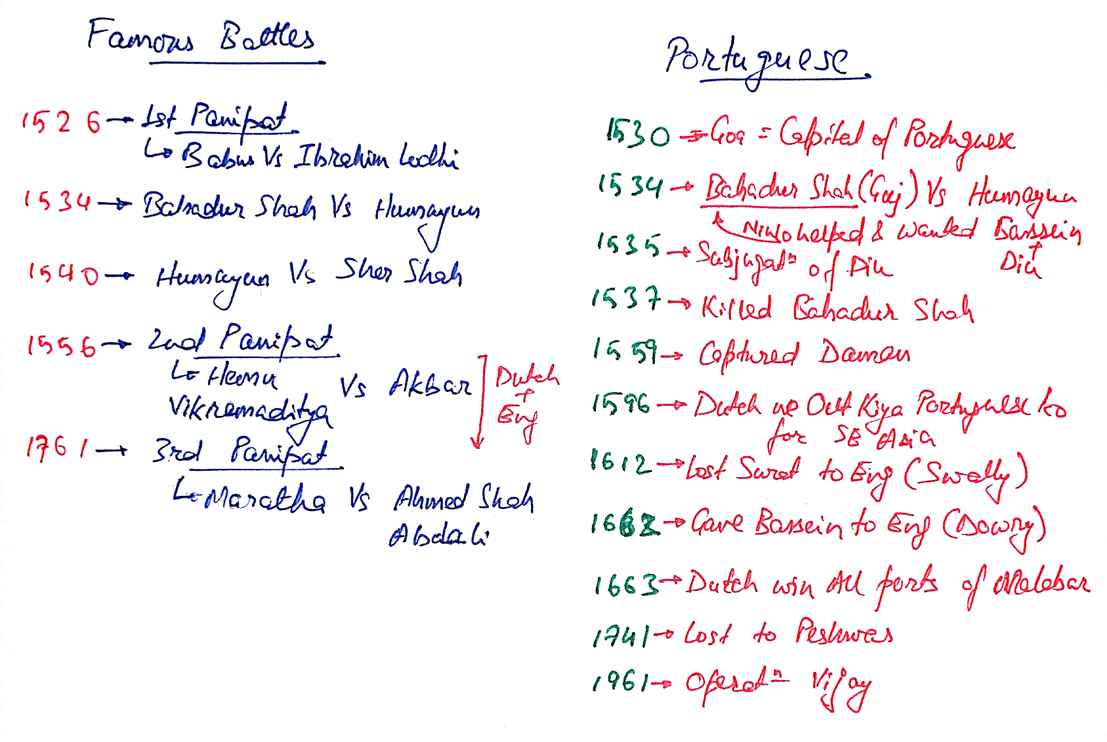 Famous Battles
1526 → 1st Panipat
↳ Babur Vs Ibrahim Lodhi
1534 → Bahadur Shah Vs Humayun
1540 → Humayun Vs Sher Shah
1556 → 2nd Panipat
↳ Hemu Vikramaditya Vs Akbar
Dutch + Eng
1761 → 3rd Panipat
↳ Maratha Vs Ahmed Shah
Abdali
Portuguese
1530 → Goa = Capital of Portuguese
1534 → Bahadur Shah (Guj) Vs Humayun
helped & wanted Bassein + Diu
1535 → Subjugatn of Diu
1537 → Killed Bahadur Shah
1559 → Captured Daman
1596 → Dutch ne Out Kiya Portuguese ko
for SE Asia
1612 → Lost Surat to Eng (Swally)
1662 → Gave Bassein to Eng (Dowry)
1663 → Dutch win All ports of Malabar
1741 → Lost to Peshwas
1961 → Operatn Vijay